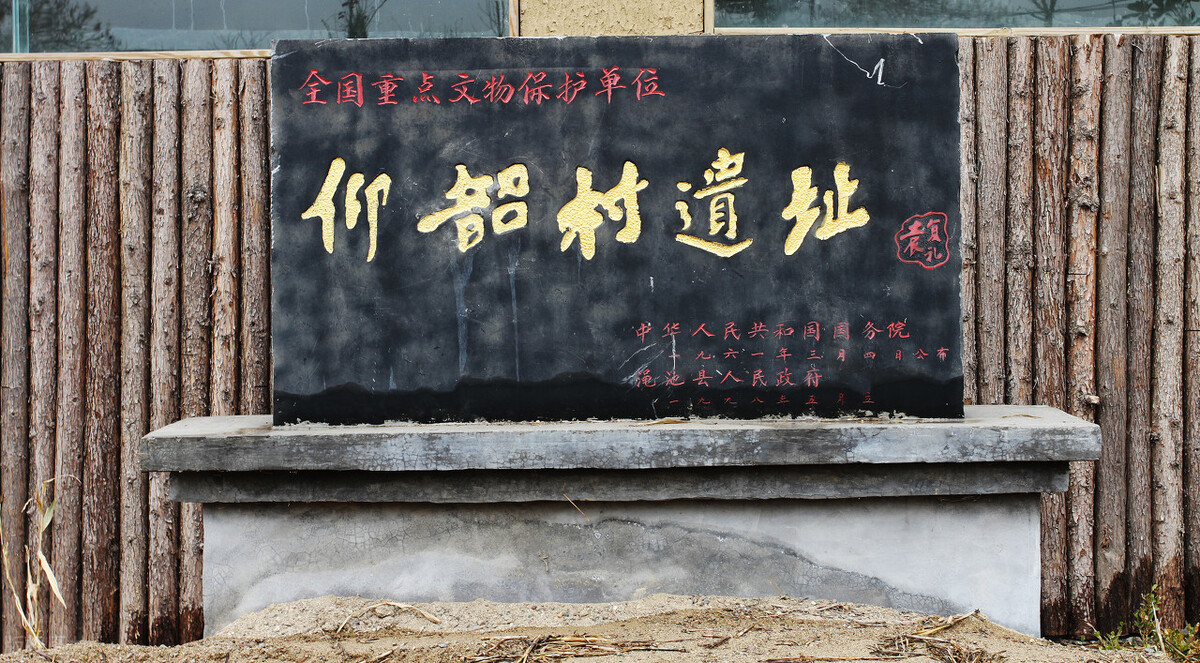 全国重点文物保护单位
仰韶村遗址
袁复礼
中华人民共和国国务院
一九六一年三月四日公布
渑池县人民政府